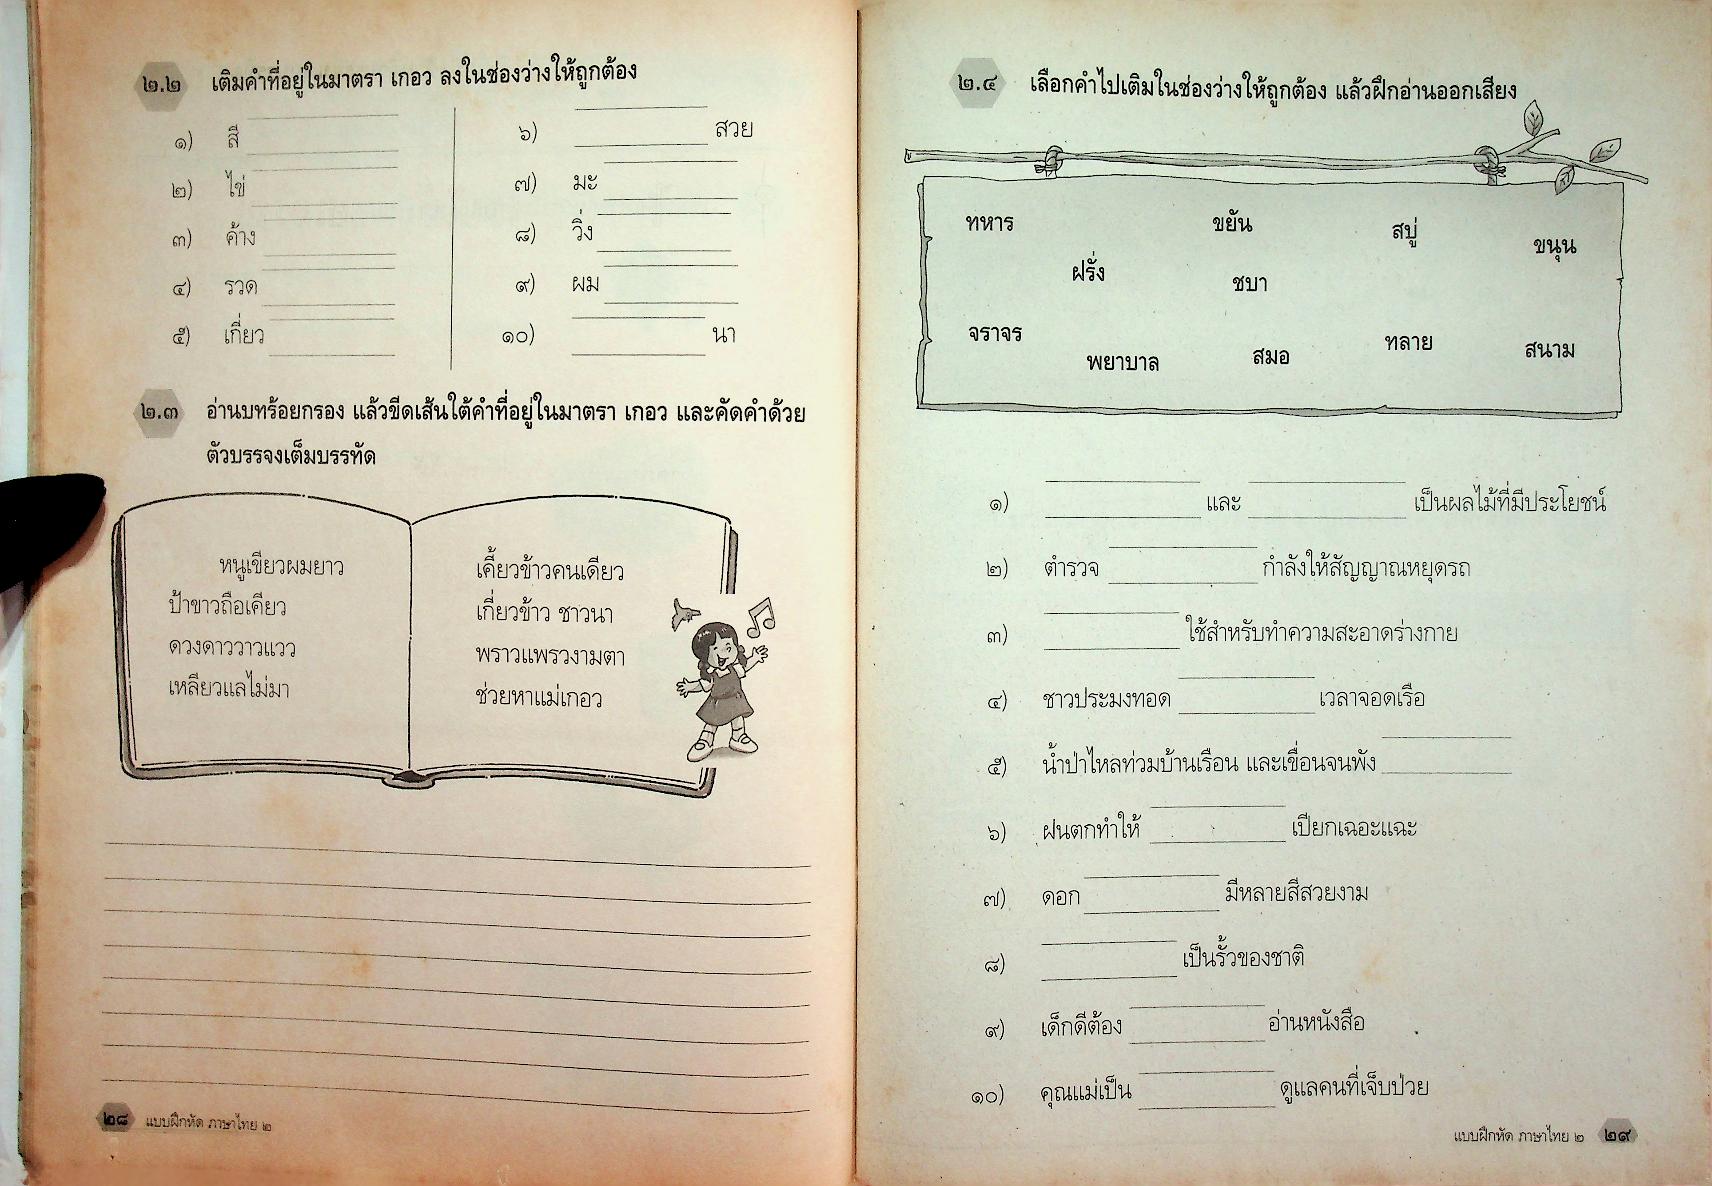 ๒.๒ เติมคำที่อยู่ในมาตรา เกอว ลงในช่องว่างให้ถูกต้อง
๑) สี
๒) ไข่
๓) ค้าง
๔) รวด
๕) เกี่ยว
๖) สวย
๗) มะ
๘) วิ่ง
๙) ผม
๑๐) นา
๒.๓ อ่านบทร้อยกรอง แล้วขีดเส้นใต้คำที่อยู่ในมาตรา เกอว และคัดคำด้วย
ตัวบรรจงเต็มบรรทัด
หนูเขียวผมยาว เคี้ยวข้าวคนเดียว
ป้าขาวถือเคียว เกี่ยวข้าว ชาวนา
ดวงดาววาวแวว พราวแพรวงามตา
เหลียวแลไม่มา ช่วยหาแม่เกอว
๒๘ แบบฝึกหัด ภาษาไทย ๒
๒.๔ เลือกคำไปเติมในช่องว่างให้ถูกต้อง แล้วฝึกอ่านออกเสียง
ทหาร ขยัน สบู่ ขนุน
ฝรั่ง ชบา
จราจร พยาบาล สมอ ทลาย สนาม
๑) และ เป็นผลไม้ที่มีประโยชน์
๒) ตำรวจ กำลังให้สัญญาณหยุดรถ
๓) ใช้สำหรับทำความสะอาดร่างกาย
๔) ชาวประมงทอด เวลาจอดเรือ
๕) น้ำป่าไหลท่วมบ้านเรือน และเขื่อนจนพัง
๖) ฝนตกทำให้ เปียกเฉอะแฉะ
๗) ดอก มีหลายสีสวยงาม
๘) เป็นรั้วของชาติ
๙) เด็กดีต้อง อ่านหนังสือ
๑๐) คุณแม่เป็น ดูแลคนที่เจ็บป่วย
แบบฝึกหัด ภาษาไทย ๒ ๒๙